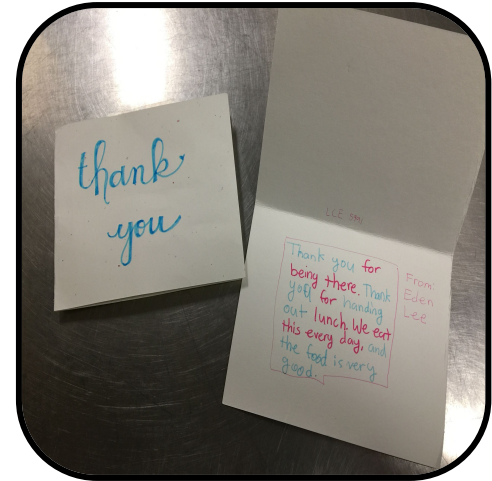 thank
you
Thank you for
being there. Thank
you for handing
out lunch. We eat
this every day, and
the food is very
good.
From
Eden
Lee